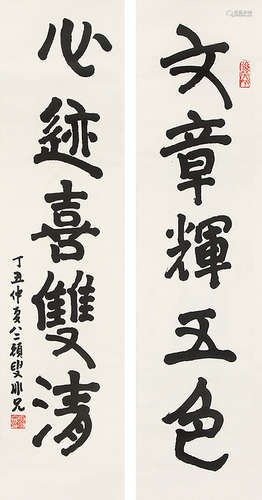 文章輝五色
心迹喜雙清
丁丑仲夏八二頑叟冰兄